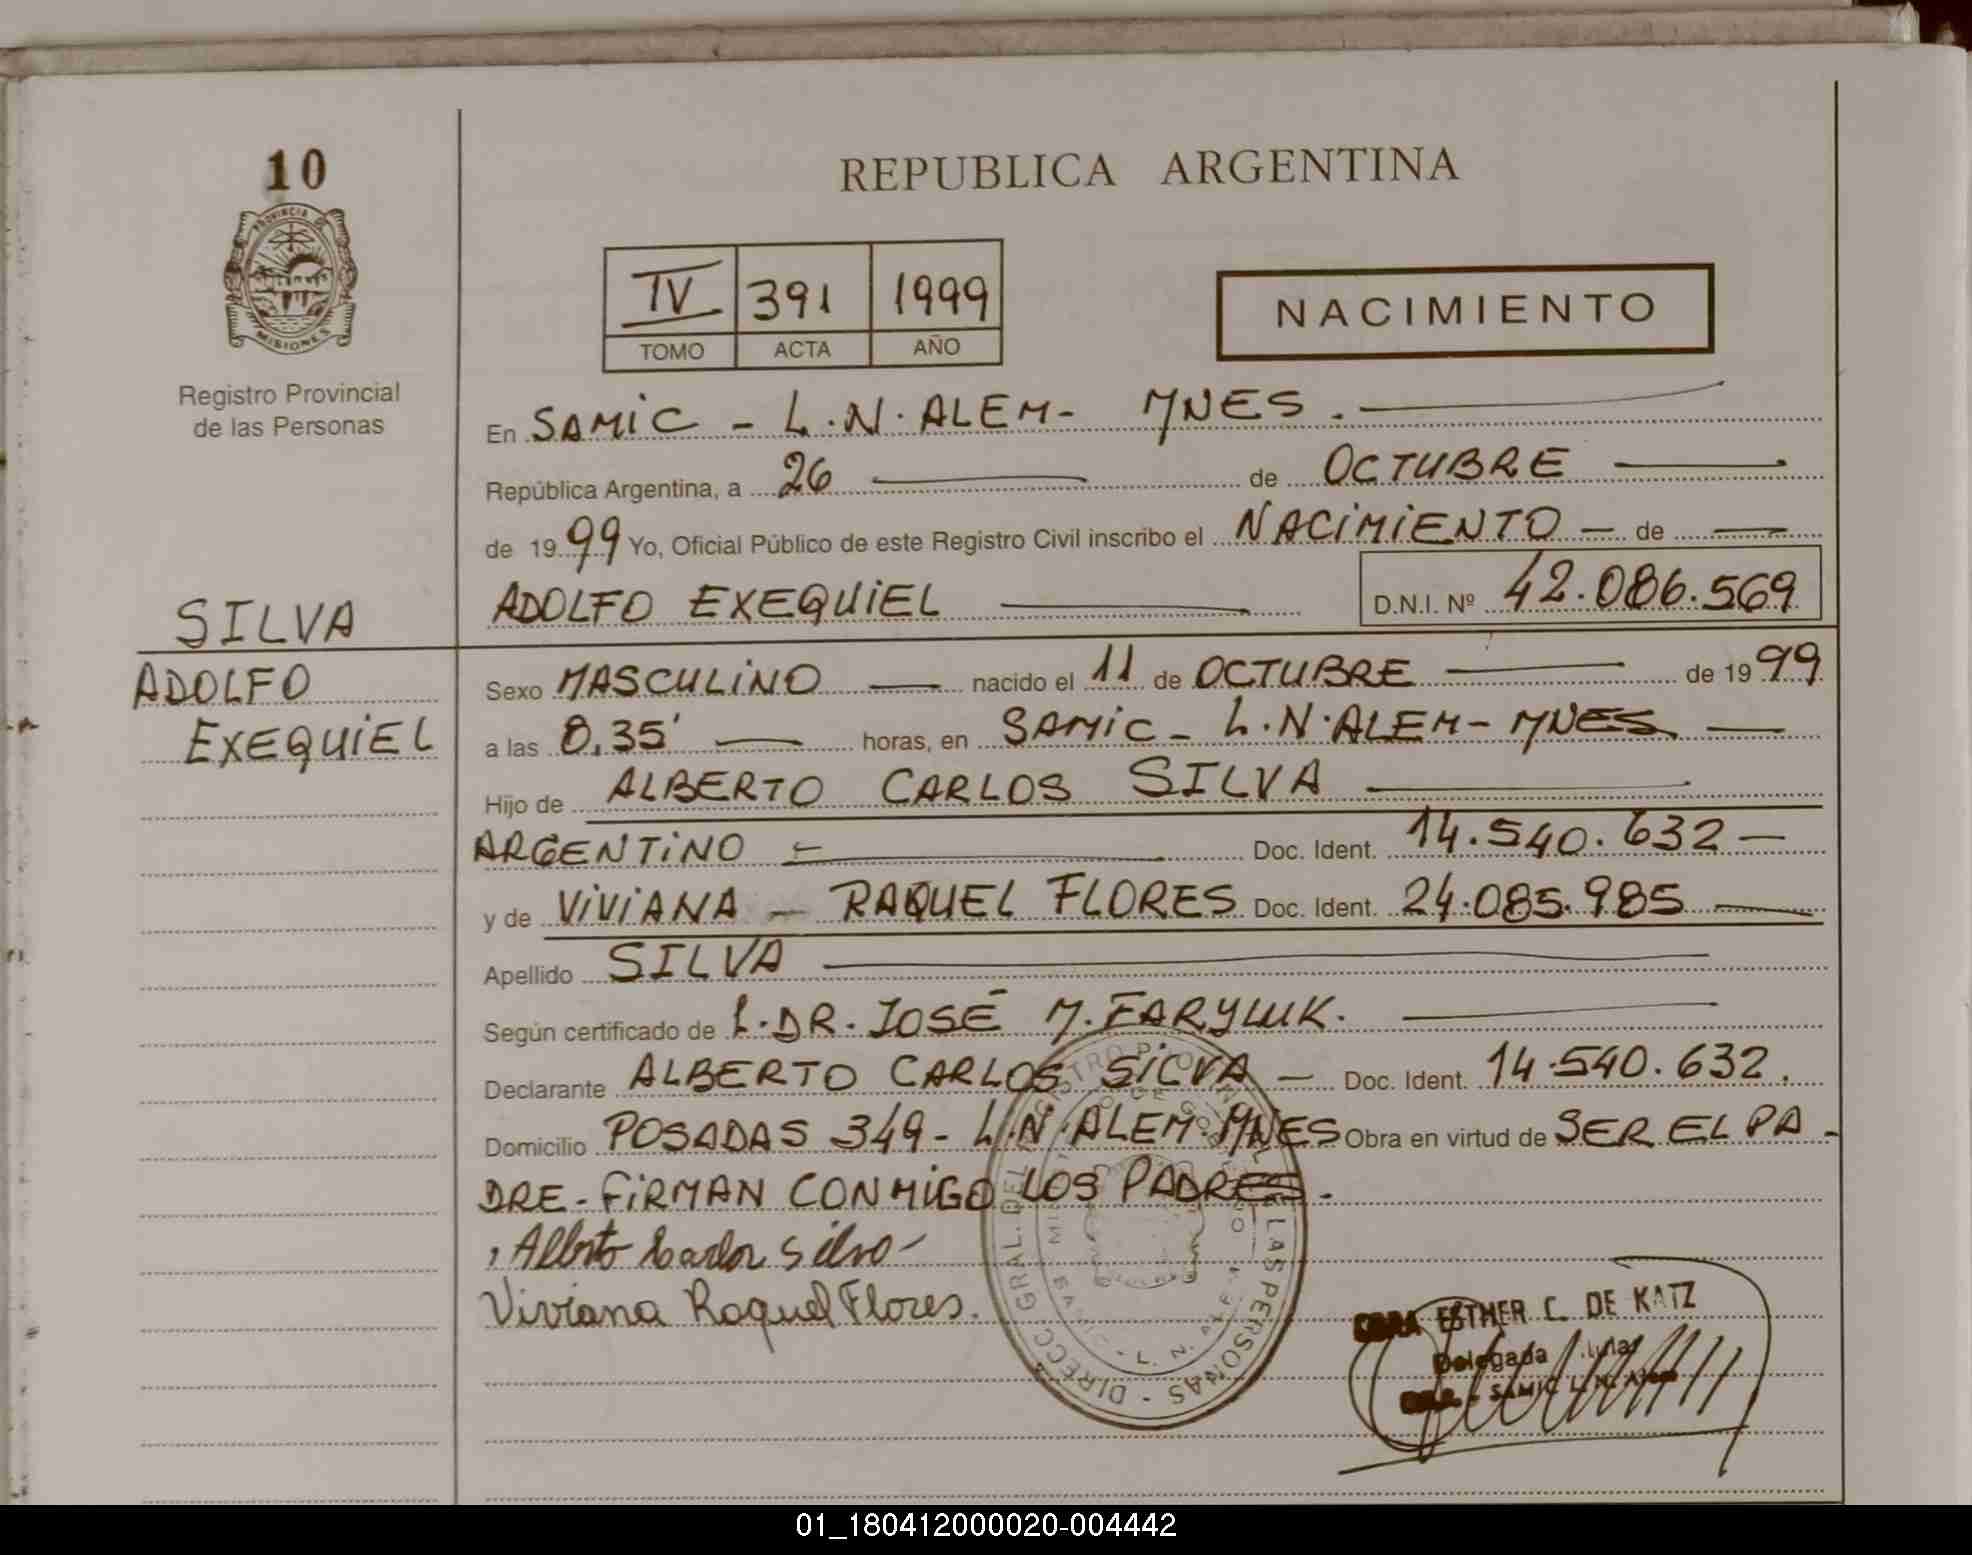 10
PROVINCIA DE
MISIONES
Registro Provincial
de las Personas
REPUBLICA ARGENTINA
IV 391 1999
TOMO ACTA AÑO
NACIMIENTO
En SAMIC - L.N. ALEM - MNES.
República Argentina, a 26 de OCTUBRE
de 1999 Yo, Oficial Público de este Registro Civil inscribo el NACIMIENTO de
ADOLFO EXEQUIEL D.N.I. Nº 42.086.569
SILVA
ADOLFO
EXEQUIEL
Sexo MASCULINO nacido el 11 de OCTUBRE de 1999
a las 8,35' horas, en SAMIC - L.N. ALEM - MNES
Hijo de ALBERTO CARLOS SILVA
ARGENTINO Doc. Ident. 14.540.632 -
y de VIVIANA - RAQUEL FLORES Doc. Ident. 24.085.985
Apellido SILVA
Según certificado de DR. JOSÉ M. FARYLUK.
Declarante ALBERTO CARLOS SILVA - Doc. Ident. 14.540.632.
Domicilio POSADAS 349 - L.N. ALEM - MNES Obra en virtud de SER EL PA-
DRE - FIRMAN CONMIGO LOS PADRES.
Alberto Carlos Silva
Viviana Raquel Flores.
DIRECC. GRAL. DEL REGISTRO PROVINCIAL DE LAS PERSONAS
L. N. ALEM
ESTHER C. DE KATZ
Delegada
SAMIC L. N. Alem
01_180412000020-004442